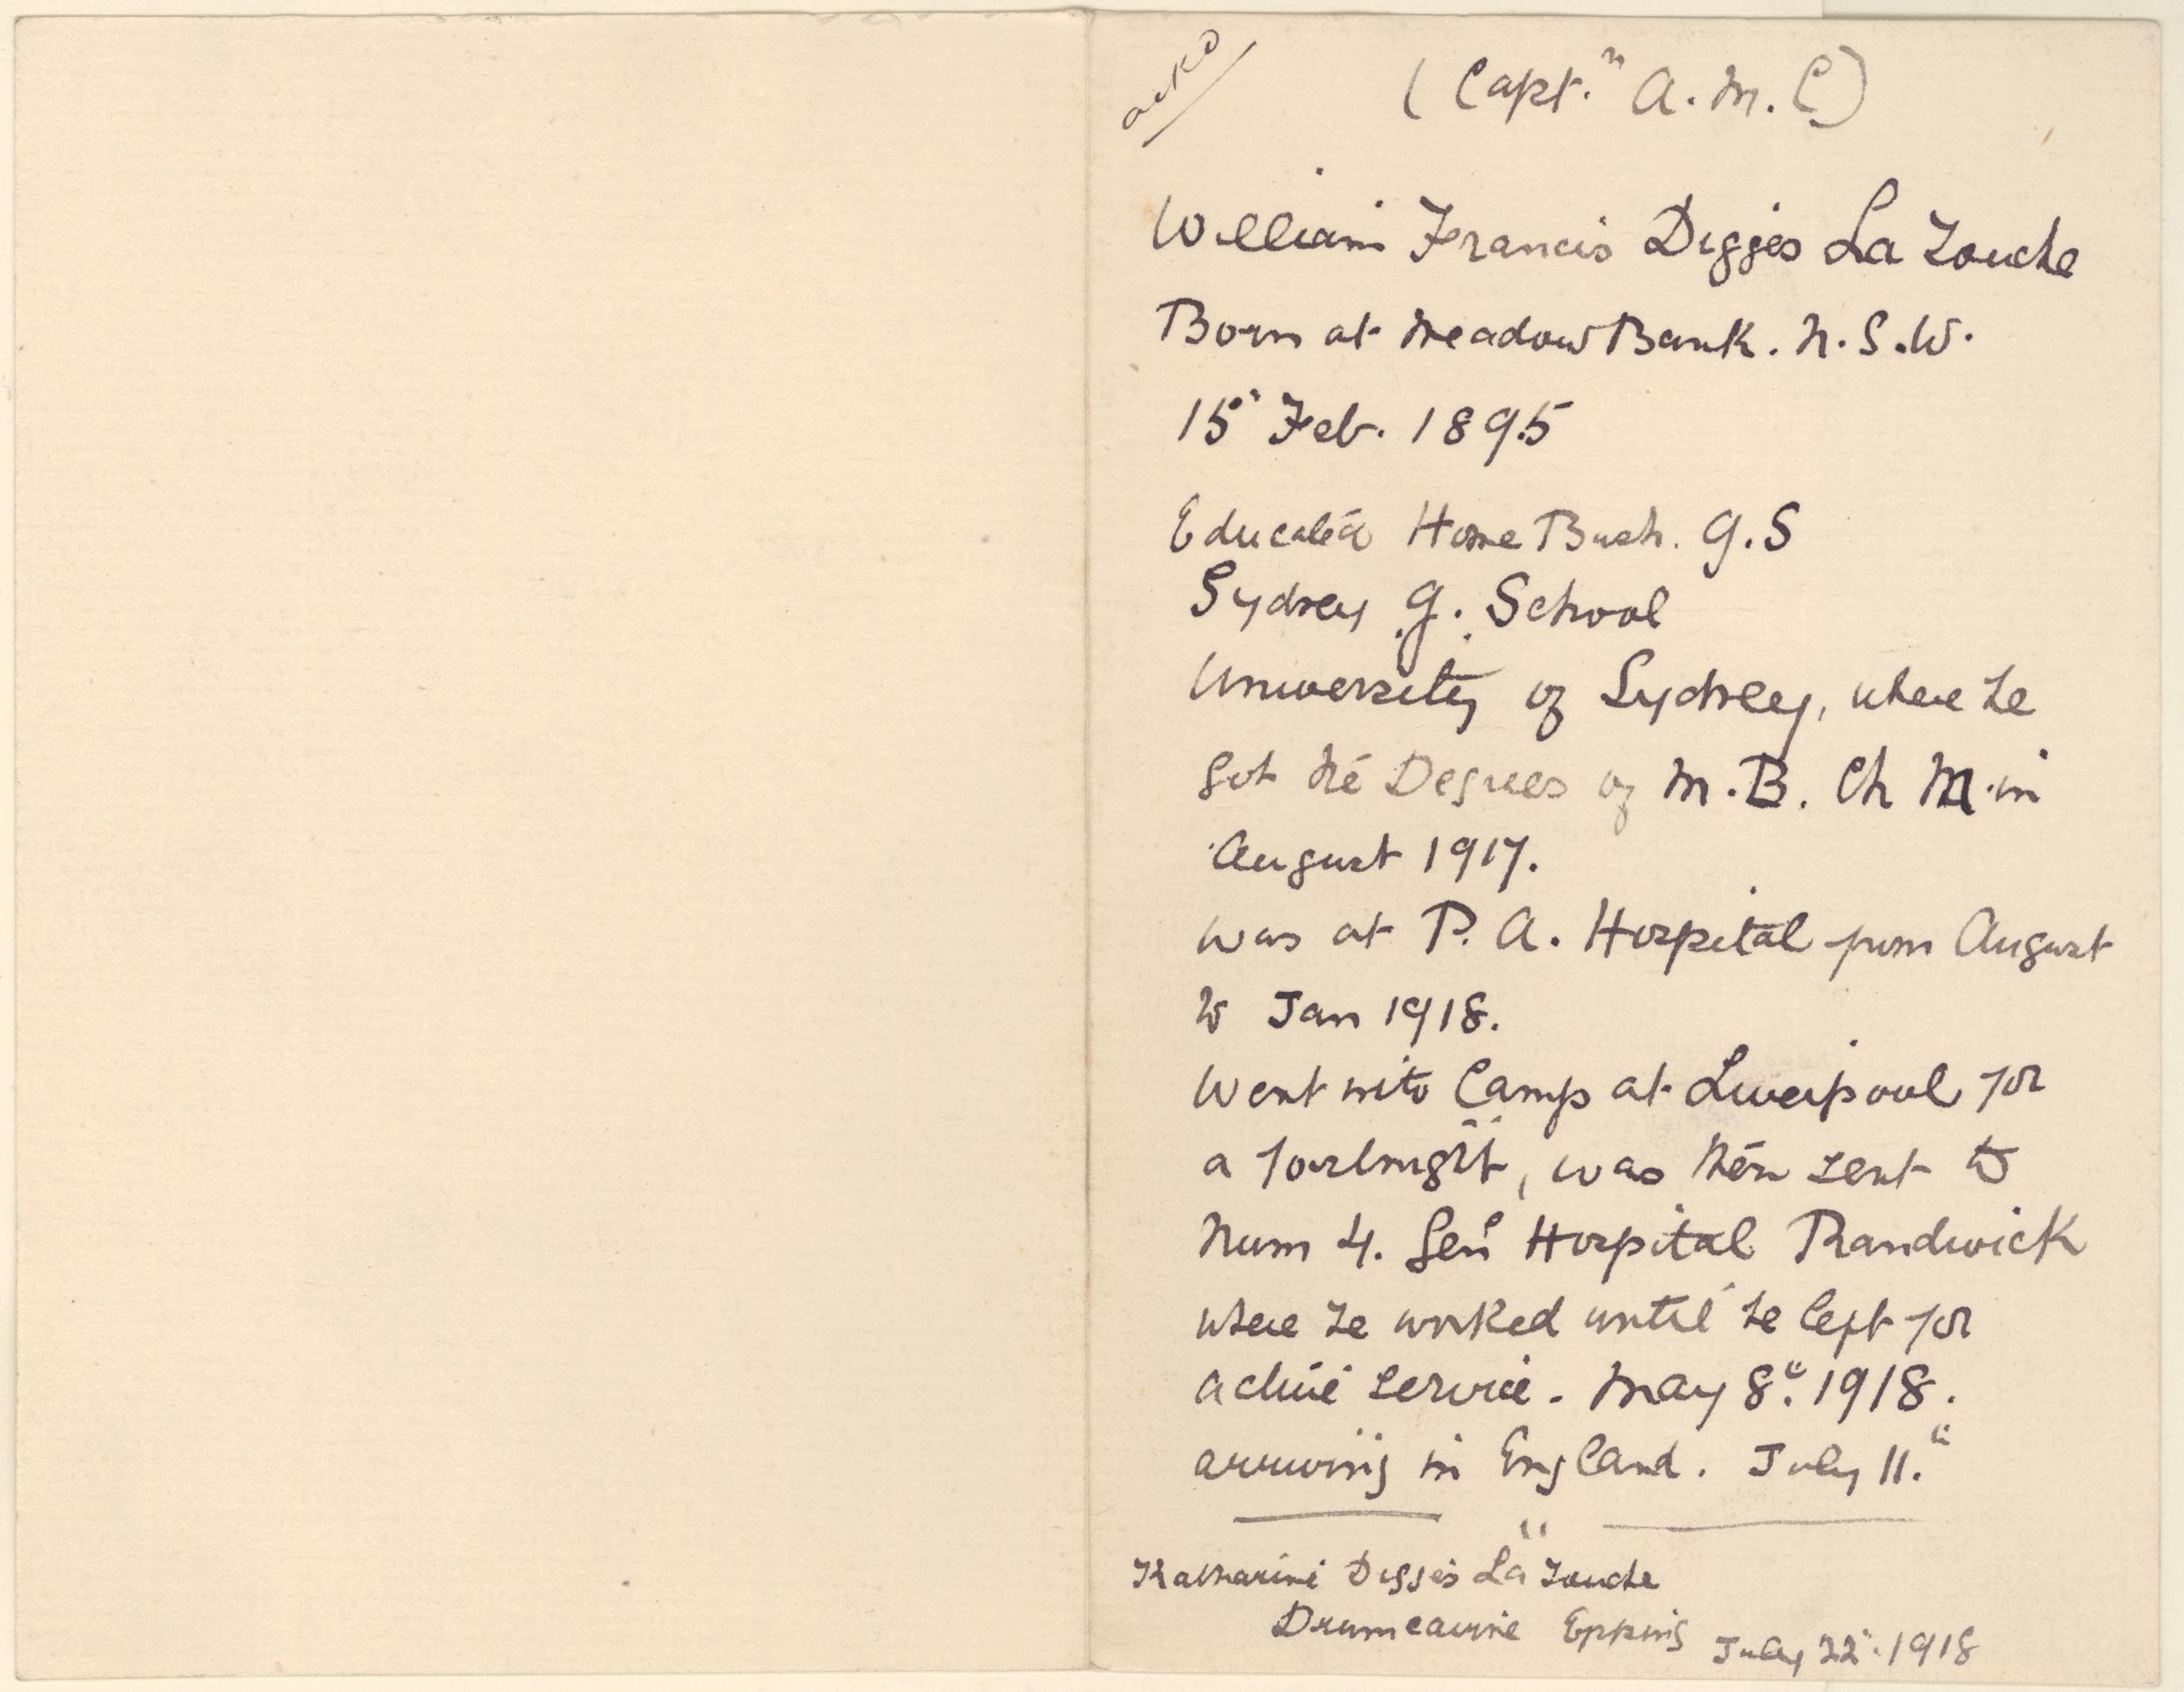 ackd
(Capt.n A.M.C)
William Francis Digges La Touche
Born at Meadow Bank. N.S.W.
15" Feb. 1895
Educated Home Bush. G.S
Sydney G. School
University of Sydney, where he
got the Degrees of M.B. Ch M. in
August 1917.
was at P.A. Hospital from August
to Jan 1918.
Went into Camp at Liverpool for
a fortnight, was then sent to
Num 4. Genl Hospital Randwick
where he worked until he left for
active service. May 8". 1918.
arriving in England. July 11."
Katharine Digges La Touche
Drumcairne Epping July 22". 1918